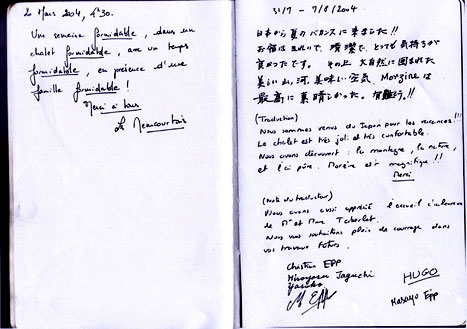 2 Mars 2004, 4°30.
Une semaine formidable, dans un
chalet formidable, avec un temps
formidable, en présence d'une
famille formidable !
Merci à tous
31/7 - 7/8/2004
日本から夏のバランスに来ました!!
お宿はきれいで、清潔で、とっても気持ちが
良かったです。 その上 大自然に囲まれた
美しい山、河、美味しい空気、Morzineは
最高に素晴しかった。有難う!!
(Traduction)
Nous sommes venus du Japon pour les vacances!!!
Le chalet est très joli et très confortable.
Nous avons découvert : la montagne, la nature,
et l'air pure. Morzine est magnifique !!
Merci
(Note du traducteur)
Nous avons aussi apprécié l'accueil chaleureux
de Mr et Mme Taberlet.
Nous vous souhaitons plein de courage dans
vos travaux futurs.
Christian EPP
Hiroyasu Taguchi
Yasuko
HUGO
Masayo Epp